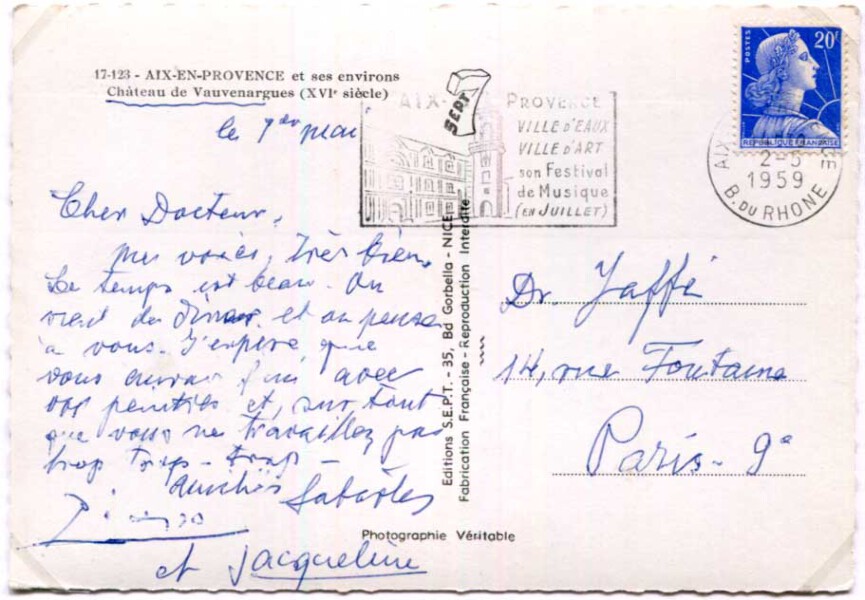 17-123 - AIX-EN-PROVENCE et ses environs
Château de Vauvenargues (XVIe siècle)
le 1er mai
Cher Docteur,
très bien,
Le temps est beau. On
vient de dîner et on pense
à vous. J'espère que
vous avec
vos peintres et, surtout
que vous ne travaillez pas
trop trop - trop -
Amitiés Sabartés
Picasso
et Jacqueline
AIX- PROVENCE
SEPT
VILLE D'EAUX
VILLE D'ART
son Festival
de Musique
(EN JUILLET)
POSTES
20F
REPUBLIQUE FRANÇAISE
AIX
2-5
1959
B. DU RHONE
Editions S.E.P.T. - 35, Bd Gorbella - NICE
Fabrication Française - Reproduction Interdite
Dr. Jaffé
14, rue Fontaine
Paris - 9e
Photographie Véritable